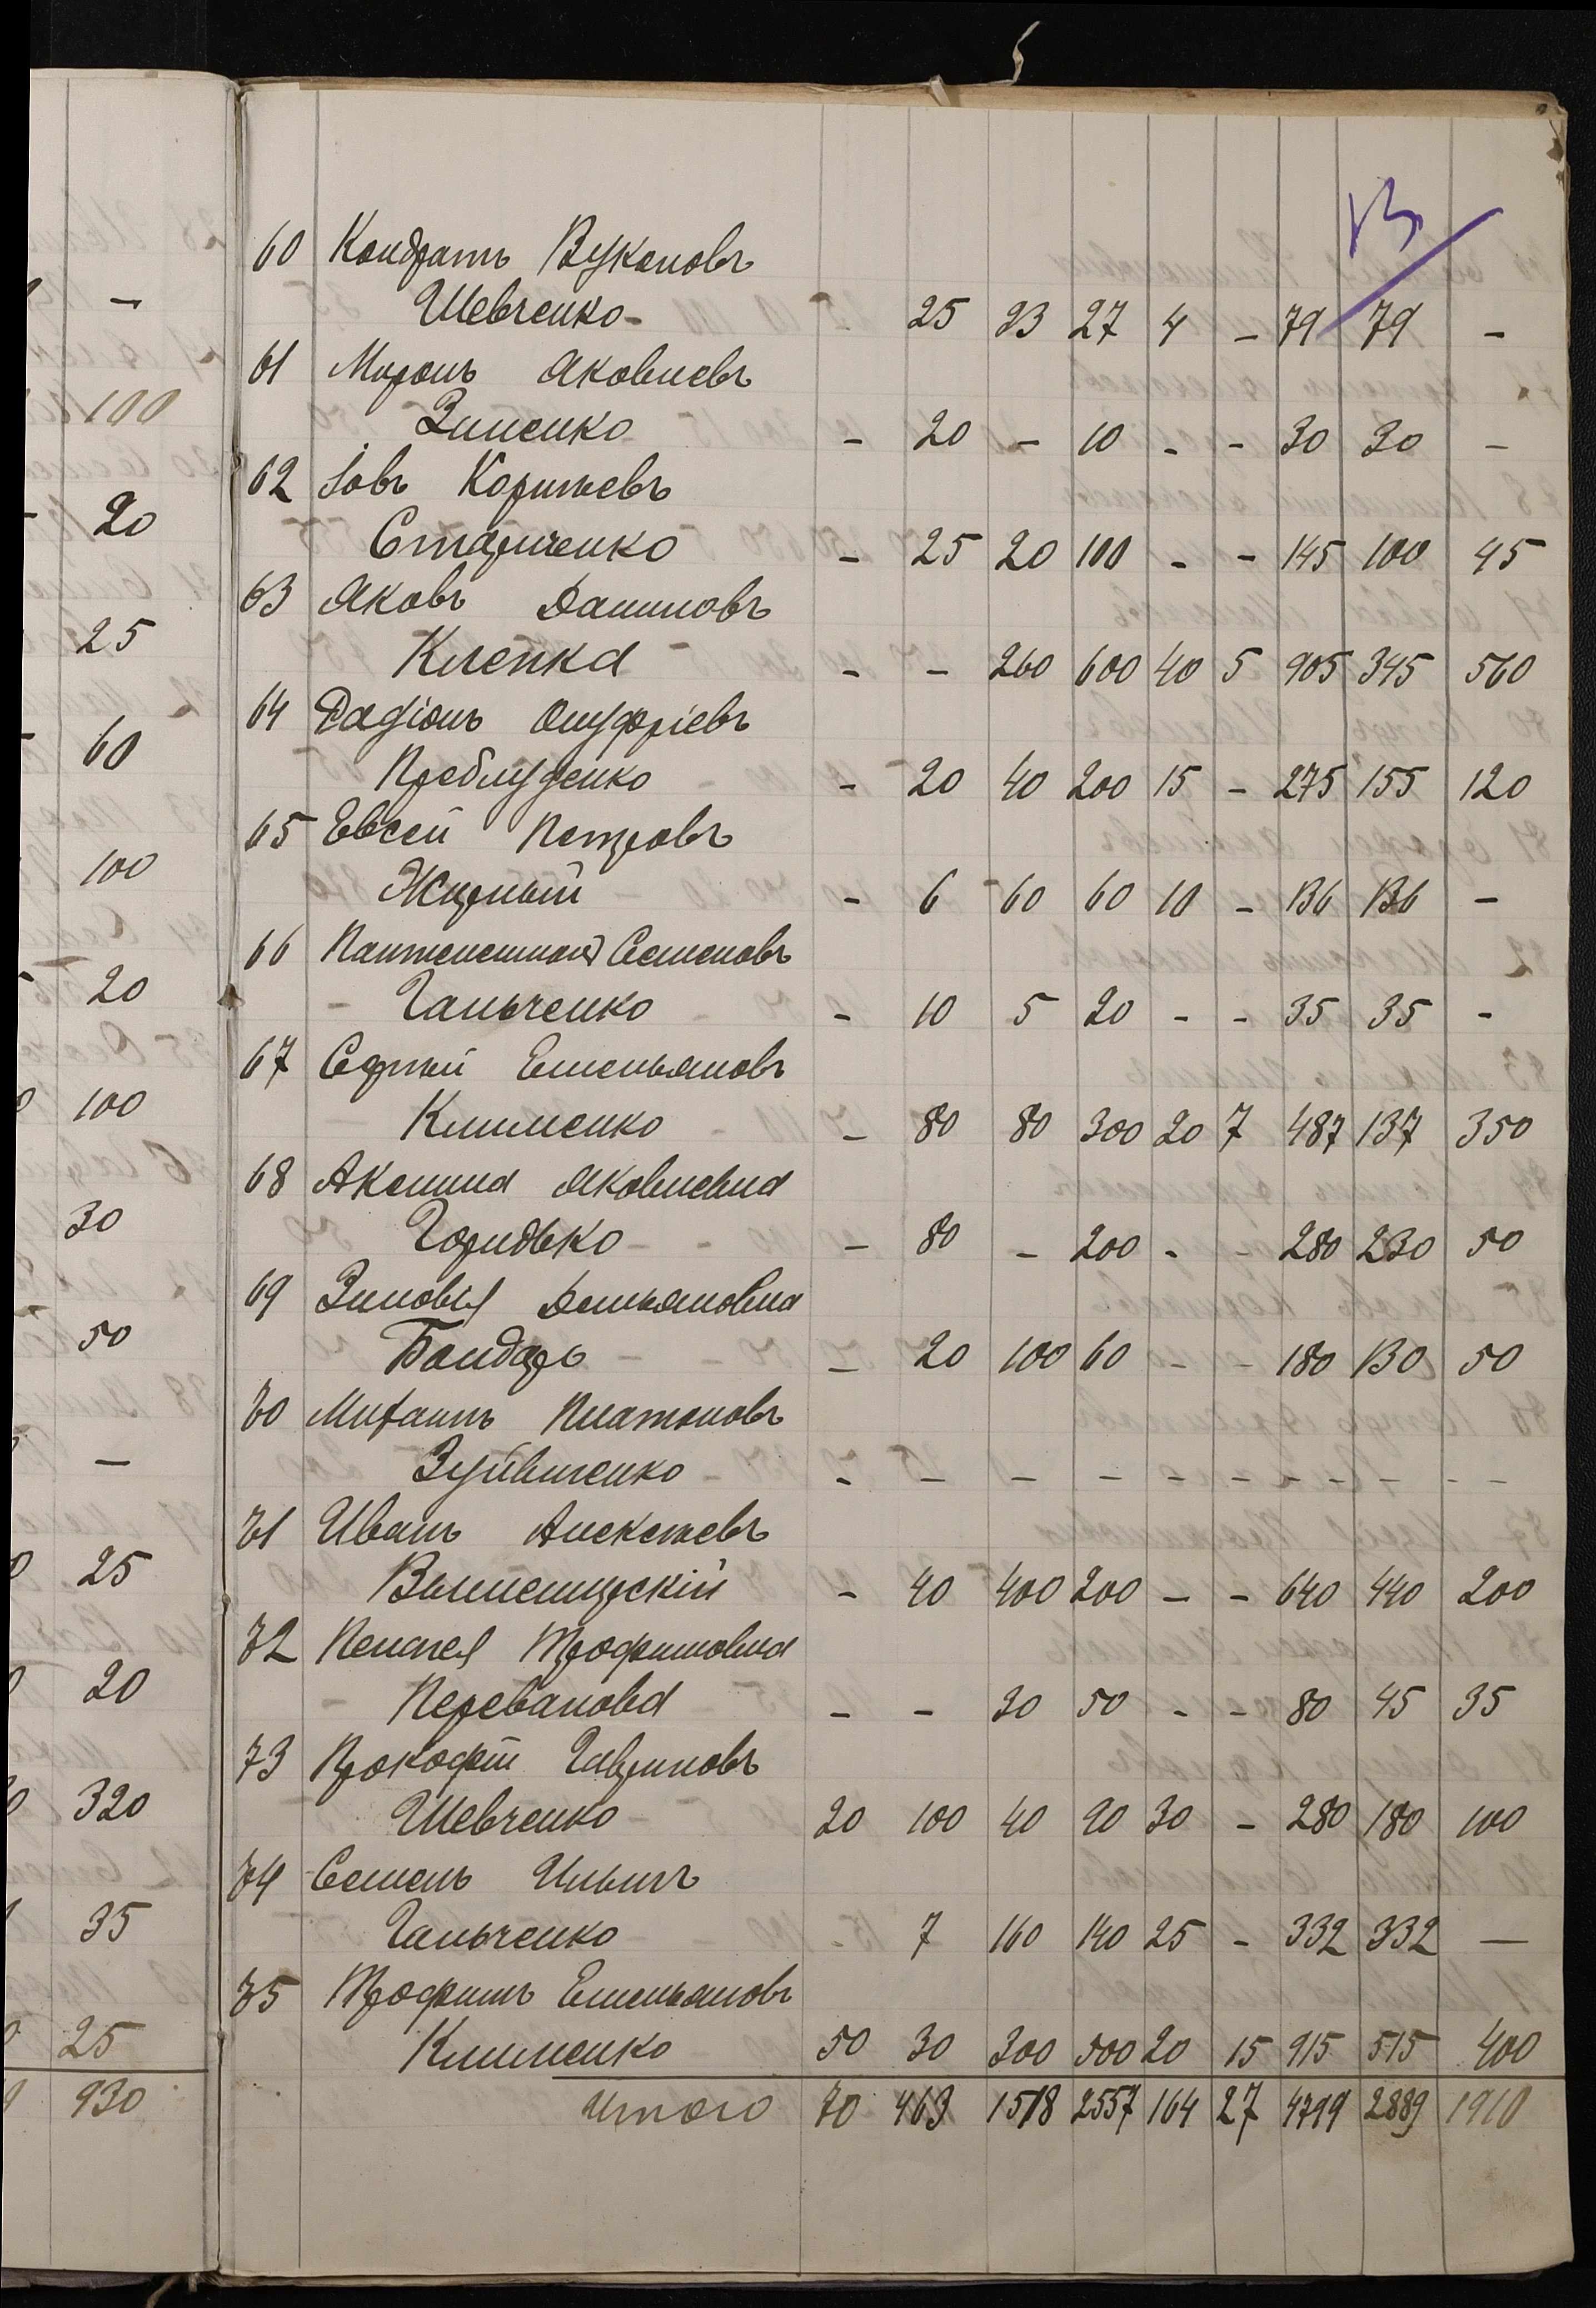 —
100
20
25
60
100
20
100
30
50
—
25
20
320
35
25
930
13
60 Кондратъ Вуколовъ
Шевченко - 25 23 27 4 - 79 79 -
61 Миронъ Яковлевъ
Зименко - 20 - 10 - - 30 30 -
62 Іовъ Корнѣевъ
Старченко - 25 20 100 - - 145 100 45
63 Яковъ Даниловъ
Клепка - - 260 600 40 5 905 345 560
64 Радіонъ Онуфріевъ
Преблуденко - 20 40 200 15 - 275 155 120
65 Евсей Петровъ
Жирный - 6 60 60 10 - 136 136 -
66 Пантелеимонъ Семеновъ
Гальченко - 10 5 20 - - 35 35 -
67 Сергѣй Емельяновъ
Клименко - 80 80 300 20 7 487 137 350
68 Аксинья Яковлевна
Горидько - 80 - 200 - - 280 230 50
69 Зиновія Демьяновна
Бондарь - 20 100 60 - - 180 130 50
70 Михаилъ Платоновъ
Зуйвченко - - - - - - - - -
71 Иванъ Алексѣевъ
Вышемирскій - 40 400 200 - - 640 440 200
72 Пелагея Трофимовна
Перевалова - - 30 50 - - 80 45 35
73 Прокофій Гавриловъ
Шевченко 20 100 40 90 30 - 280 180 100
74 Семенъ Ильичъ
Гальченко - 7 160 140 25 - 332 332 —
75 Трофимъ Емельяновъ
Клименко 50 30 300 500 20 15 915 515 400
Итого 70 463 1518 2557 164 27 4799 2889 1910